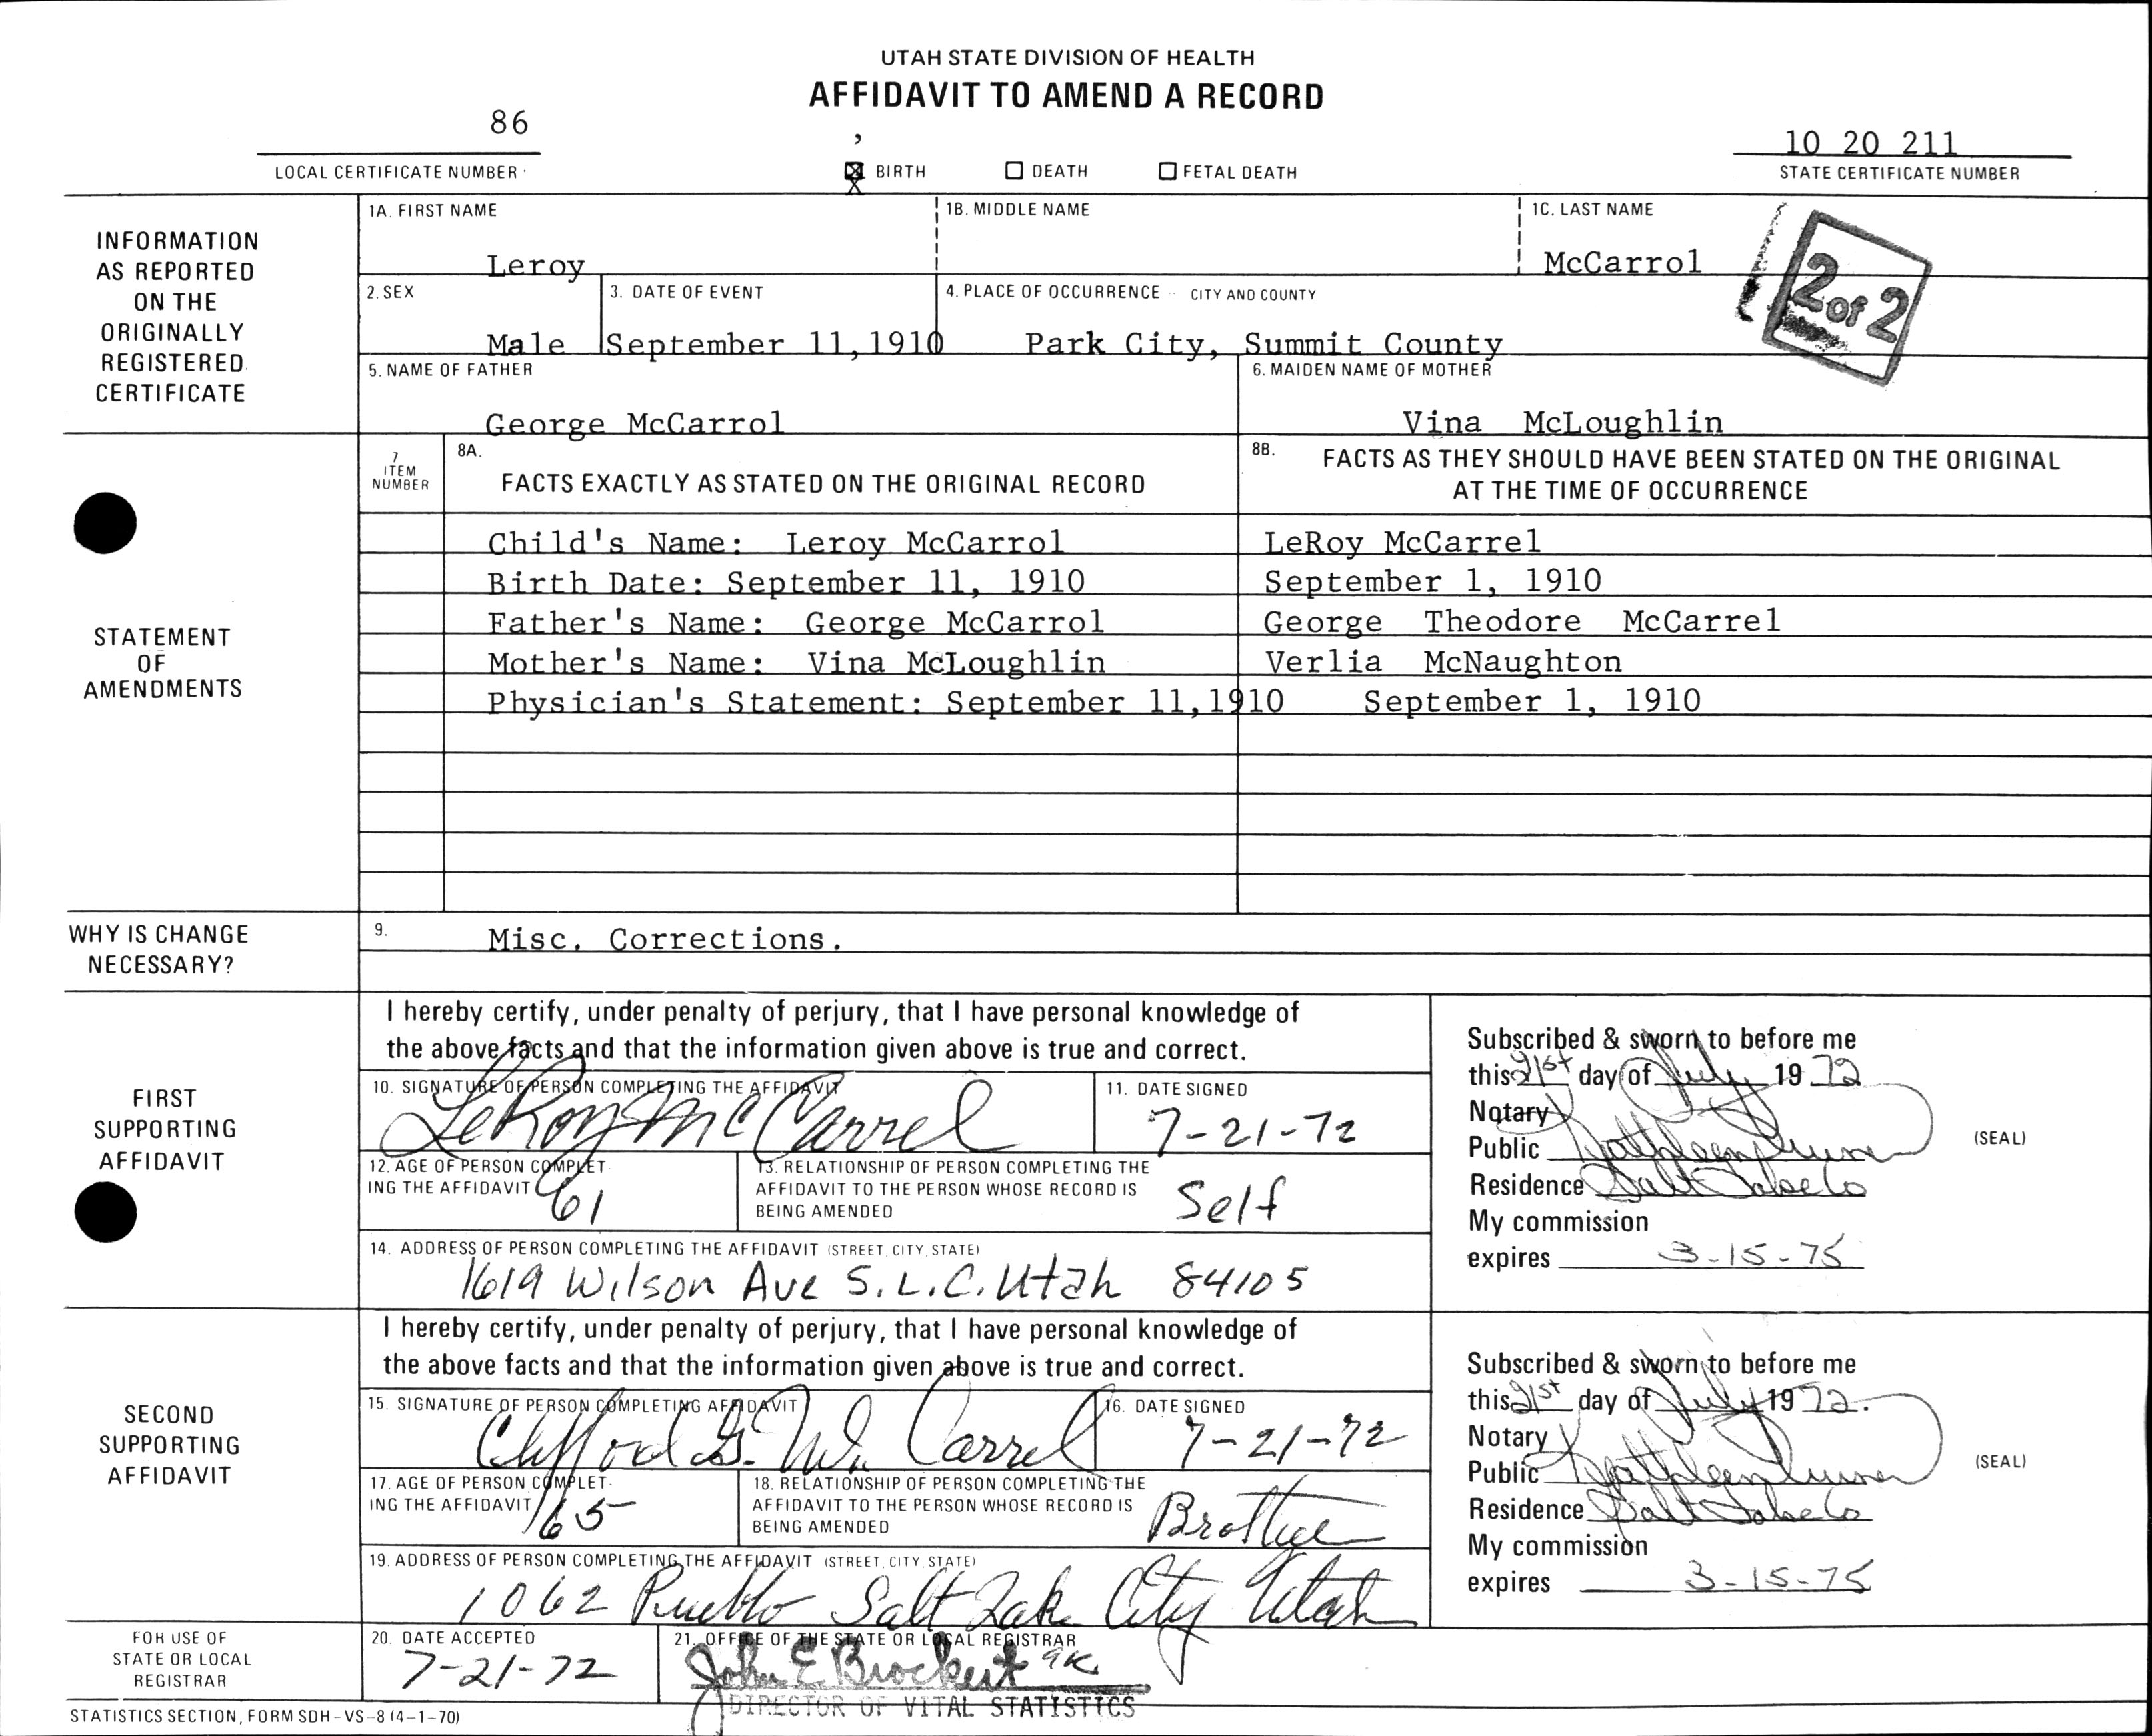 UTAH STATE DIVISION OF HEALTH
AFFIDAVIT TO AMEND A RECORD
86
LOCAL CERTIFICATE NUMBER
BIRTH DEATH FETAL DEATH
10 20 211
STATE CERTIFICATE NUMBER
INFORMATION AS REPORTED ON THE ORIGINALLY REGISTERED CERTIFICATE
1A. FIRST NAME
Leroy
1B. MIDDLE NAME
1C. LAST NAME
McCarrol
2 of 2
2. SEX
Male
3. DATE OF EVENT
September 11,1910
4. PLACE OF OCCURRENCE - CITY AND COUNTY
Park City, Summit County
5. NAME OF FATHER
George McCarrol
6. MAIDEN NAME OF MOTHER
Vina McLoughlin
STATEMENT OF AMENDMENTS
7 ITEM NUMBER
8A. FACTS EXACTLY AS STATED ON THE ORIGINAL RECORD
8B. FACTS AS THEY SHOULD HAVE BEEN STATED ON THE ORIGINAL
AT THE TIME OF OCCURRENCE
Child's Name: Leroy McCarrol LeRoy McCarrel
Birth Date: September 11, 1910 September 1, 1910
Father's Name: George McCarrol George Theodore McCarrel
Mother's Name: Vina McLoughlin Verlia McNaughton
Physician's Statement: September 11,1910 September 1, 1910
WHY IS CHANGE NECESSARY?
9. Misc. Corrections.
FIRST SUPPORTING AFFIDAVIT
I hereby certify, under penalty of perjury, that I have personal knowledge of
the above facts and that the information given above is true and correct.
10. SIGNATURE OF PERSON COMPLETING THE AFFIDAVIT
LeRoy McCarrel
11. DATE SIGNED
7-21-72
12. AGE OF PERSON COMPLET-
ING THE AFFIDAVIT 61
13. RELATIONSHIP OF PERSON COMPLETING THE
AFFIDAVIT TO THE PERSON WHOSE RECORD IS
BEING AMENDED
Self
14. ADDRESS OF PERSON COMPLETING THE AFFIDAVIT (STREET, CITY, STATE)
1619 Wilson Ave S.L.C. Utah 84105
Subscribed & sworn to before me
this 21st day of July 19 72
Notary
Public Kathleen
Residence Salt Lake Co
My commission
expires 3-15-75
(SEAL)
SECOND SUPPORTING AFFIDAVIT
I hereby certify, under penalty of perjury, that I have personal knowledge of
the above facts and that the information given above is true and correct.
15. SIGNATURE OF PERSON COMPLETING AFFIDAVIT
Clifford G. Mc Carrel
16. DATE SIGNED
7-21-72
17. AGE OF PERSON COMPLET-
ING THE AFFIDAVIT 65
18. RELATIONSHIP OF PERSON COMPLETING THE
AFFIDAVIT TO THE PERSON WHOSE RECORD IS
BEING AMENDED
Brother
19. ADDRESS OF PERSON COMPLETING THE AFFIDAVIT (STREET, CITY, STATE)
1062 Pueblo Salt Lake City Utah
Subscribed & sworn to before me
this 21st day of July 1972.
Notary
Public Kathleen
Residence Salt Lake Co
My commission
expires 3-15-75
(SEAL)
FOR USE OF STATE OR LOCAL REGISTRAR
20. DATE ACCEPTED
7-21-72
21. OFFICE OF THE STATE OR LOCAL REGISTRAR
John E Brockert
DIRECTOR OF VITAL STATISTICS
STATISTICS SECTION, FORM SDH-VS-8 (4-1-70)